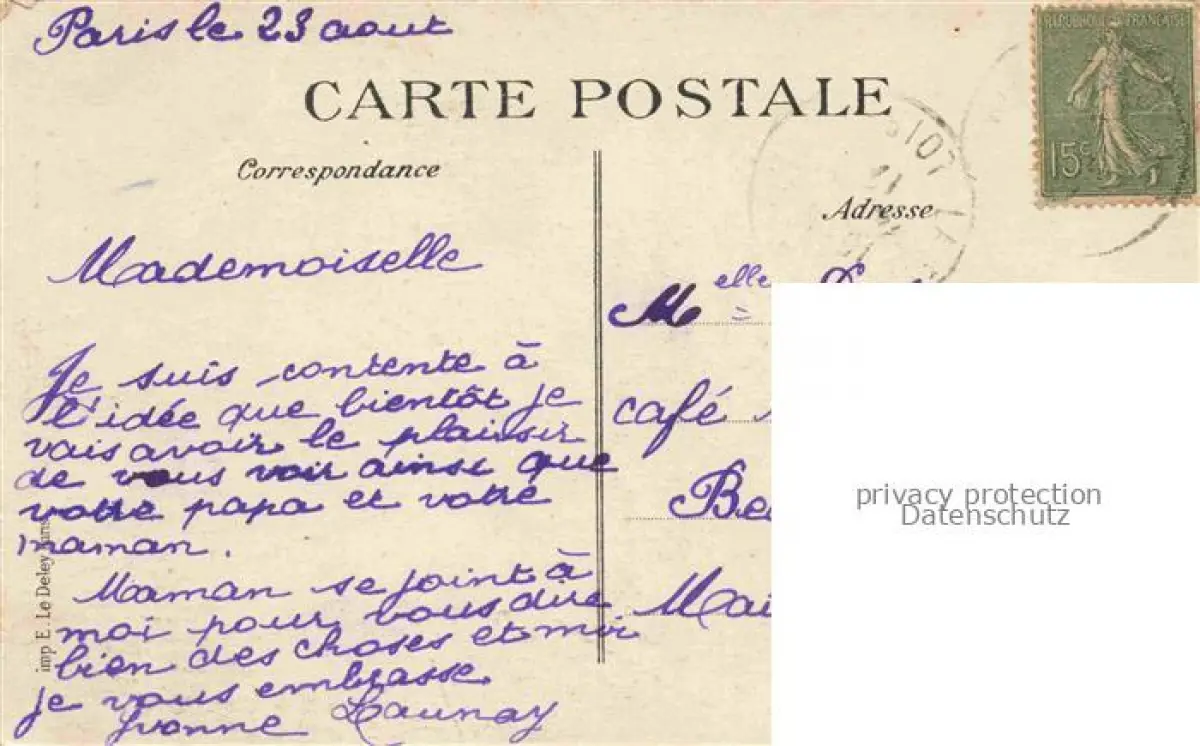 Paris le 23 aout
REPUBLIQUE FRANÇAISE
15c
CARTE POSTALE
Correspondance
Adresse
Mademoiselle
Je suis contente à
l'idée que bientôt je
vais avoir le plaisir
de vous voir ainsi que
votre papa et votre
maman.
Maman se joint à
moi pour vous dire
bien des choses et moi
je vous embrasse
Yvonne Launay
Melle
café
imp E. Le Deley Paris
privacy protection
Datenschutz